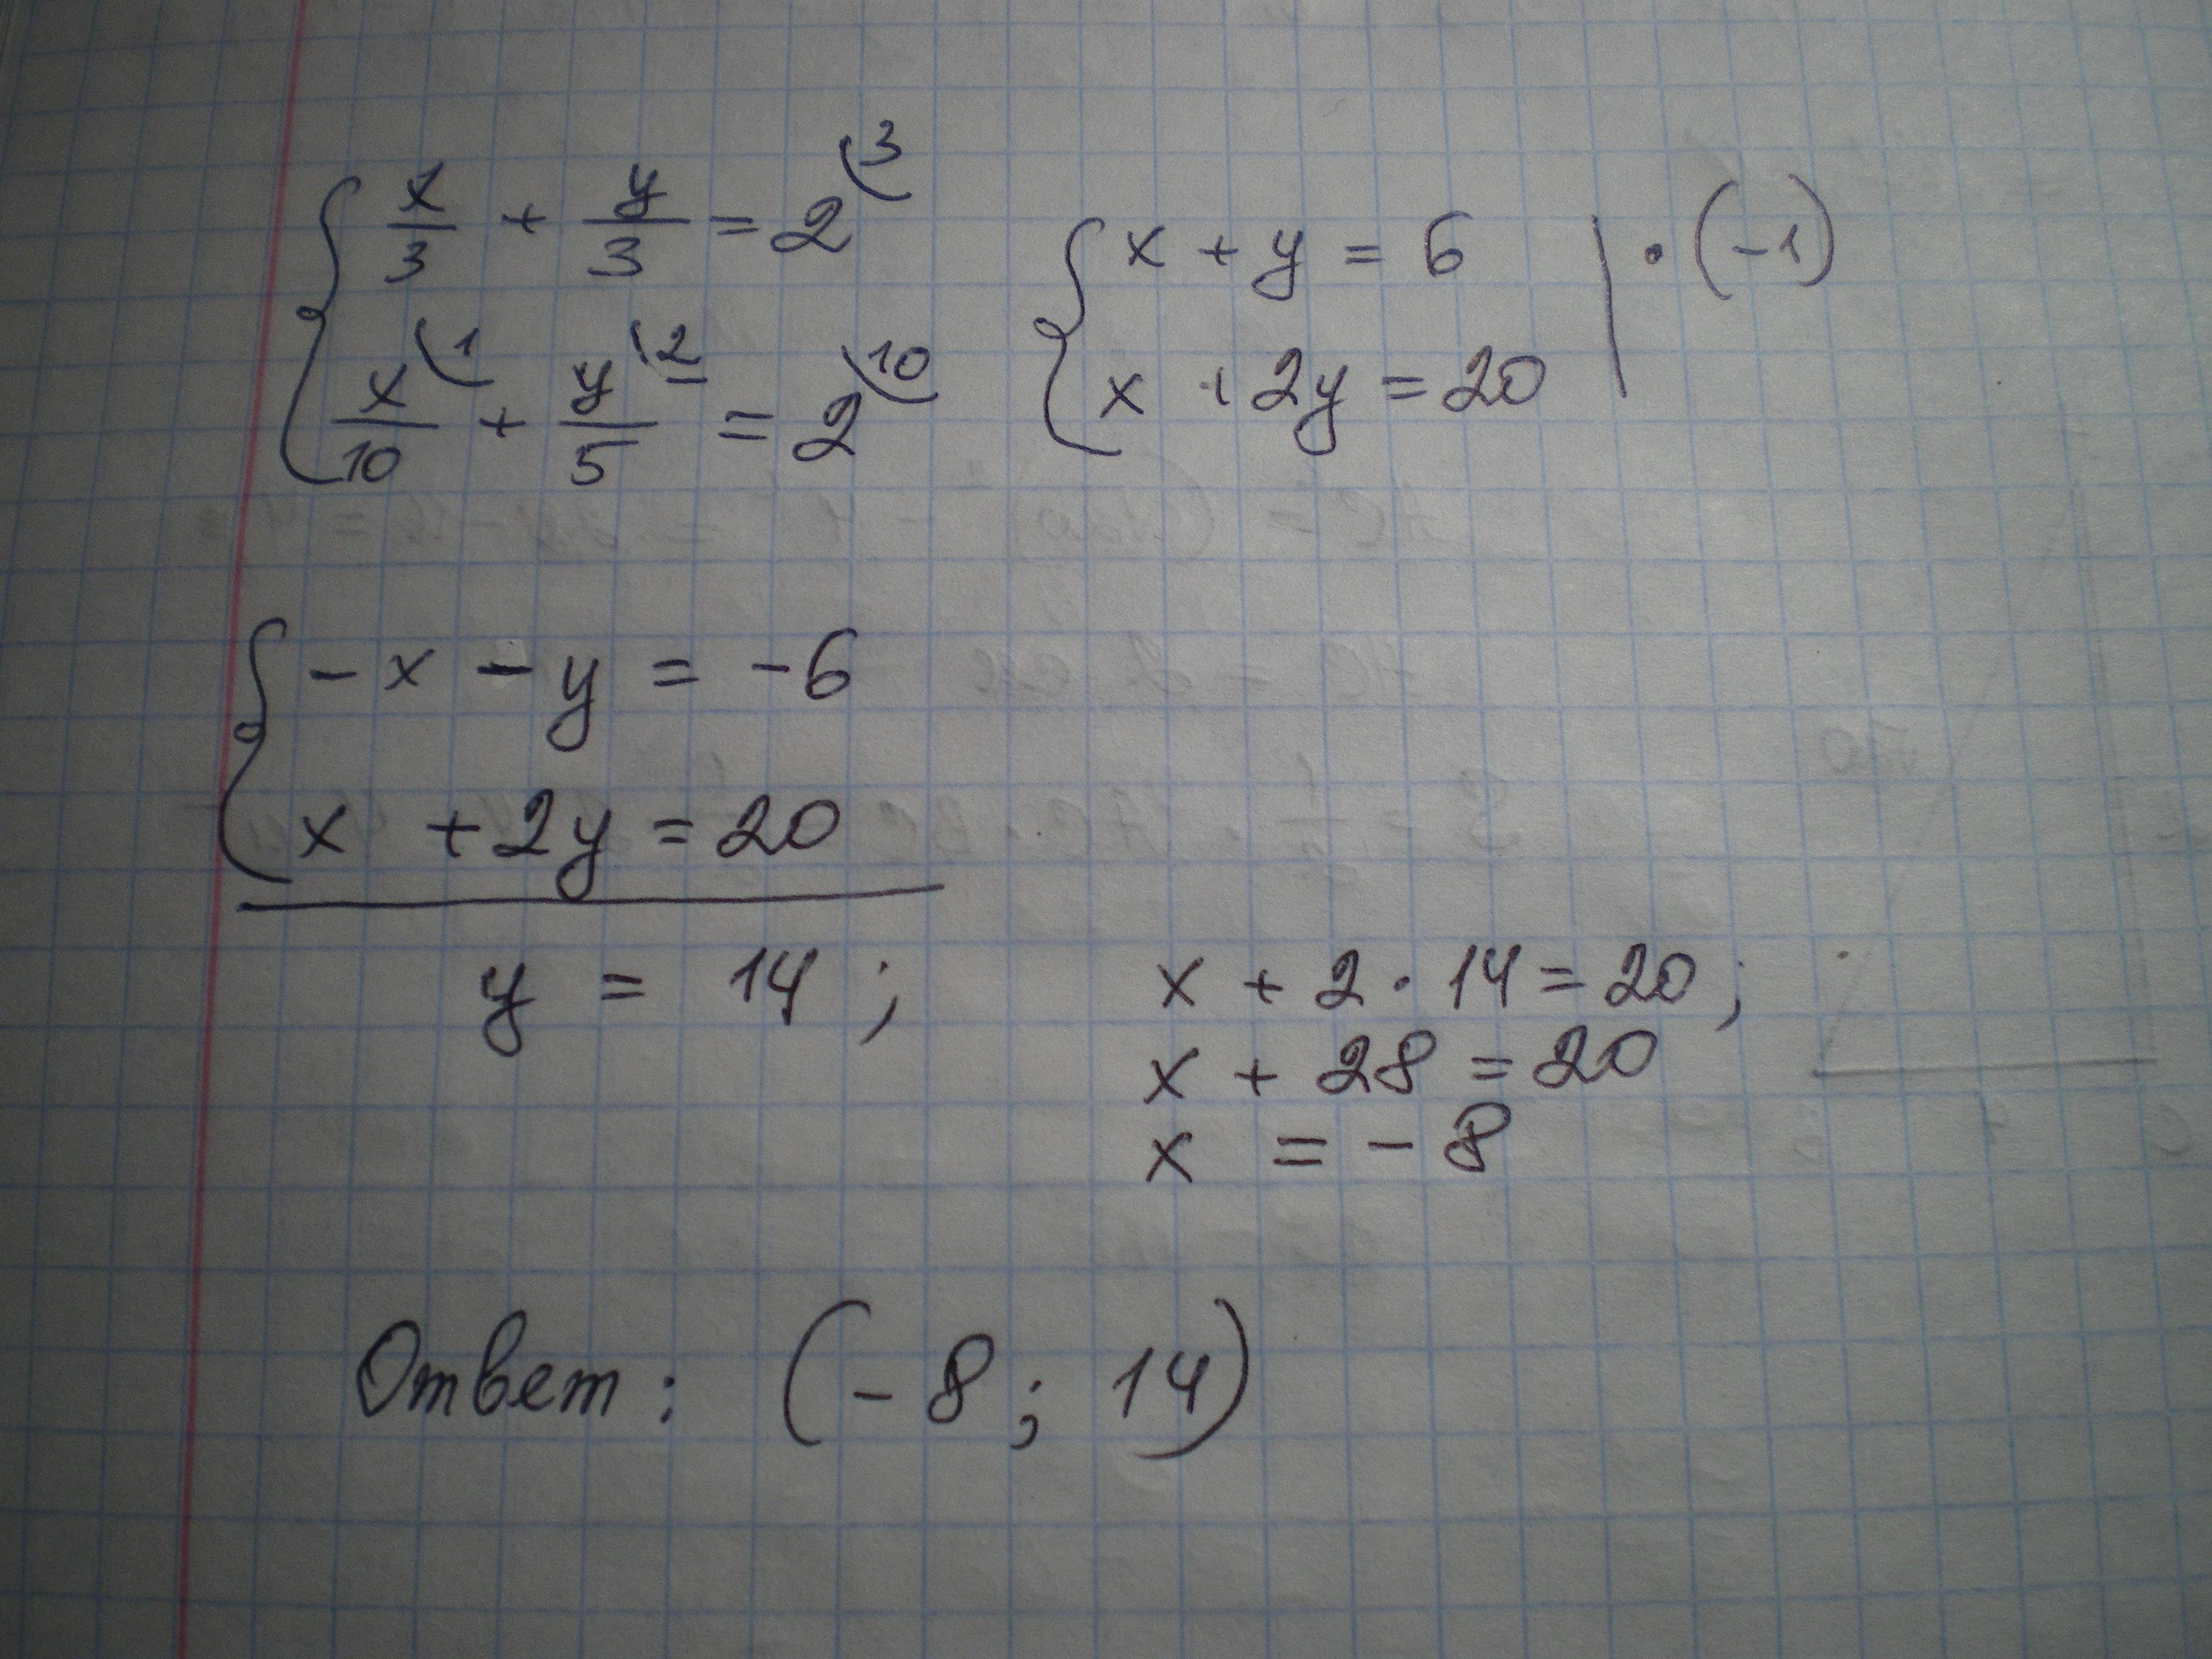 x/3 + y/3 = 2 (3
x/10 (1 + y/5 (2 = 2 (10
x + y = 6 | · (-1)
x + 2y = 20
-x - y = -6
x + 2y = 20
y = 14;
x + 2 · 14 = 20;
x + 28 = 20
x = -8
Ответ: (-8; 14)